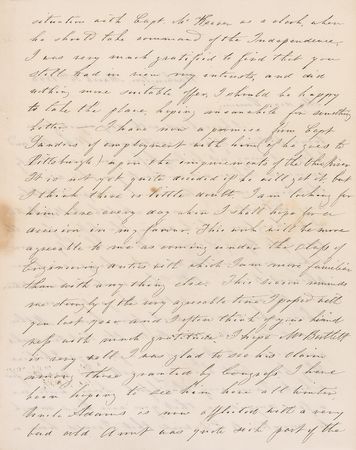 situation with Capt McKeever as a clerk, when
he should take command of the Independence,
I was very much gratified to find that you
still had in view my interests, and did
nothing more suitable offer, I should be happy
to take the place, hoping meanwhile for something
better. I have now a promise from Capt
Sanders of employment with him (if he goes to
Pittsburgh) upon the improvements of the Ohio River
It is not yet quite decided if he will get it but
I think there is little doubt, I am looking for
him here every day when I shall hope for a
decision in my favour. This work will be more
agreeable to me as coming under the class of
Engineering duties with which I am more familiar
than with any thing else. This season reminds
me strongly of the very agreeable time I passed with
you last year and I often think of your kind
ness with much gratitude. I hope Mr Bartlett
is very well I was glad to see his claim
among those granted by Congress I have
been hoping to see him here all winter
Uncle Adams is now afflicted with a very
bad cold Aunt was quite sick part of the